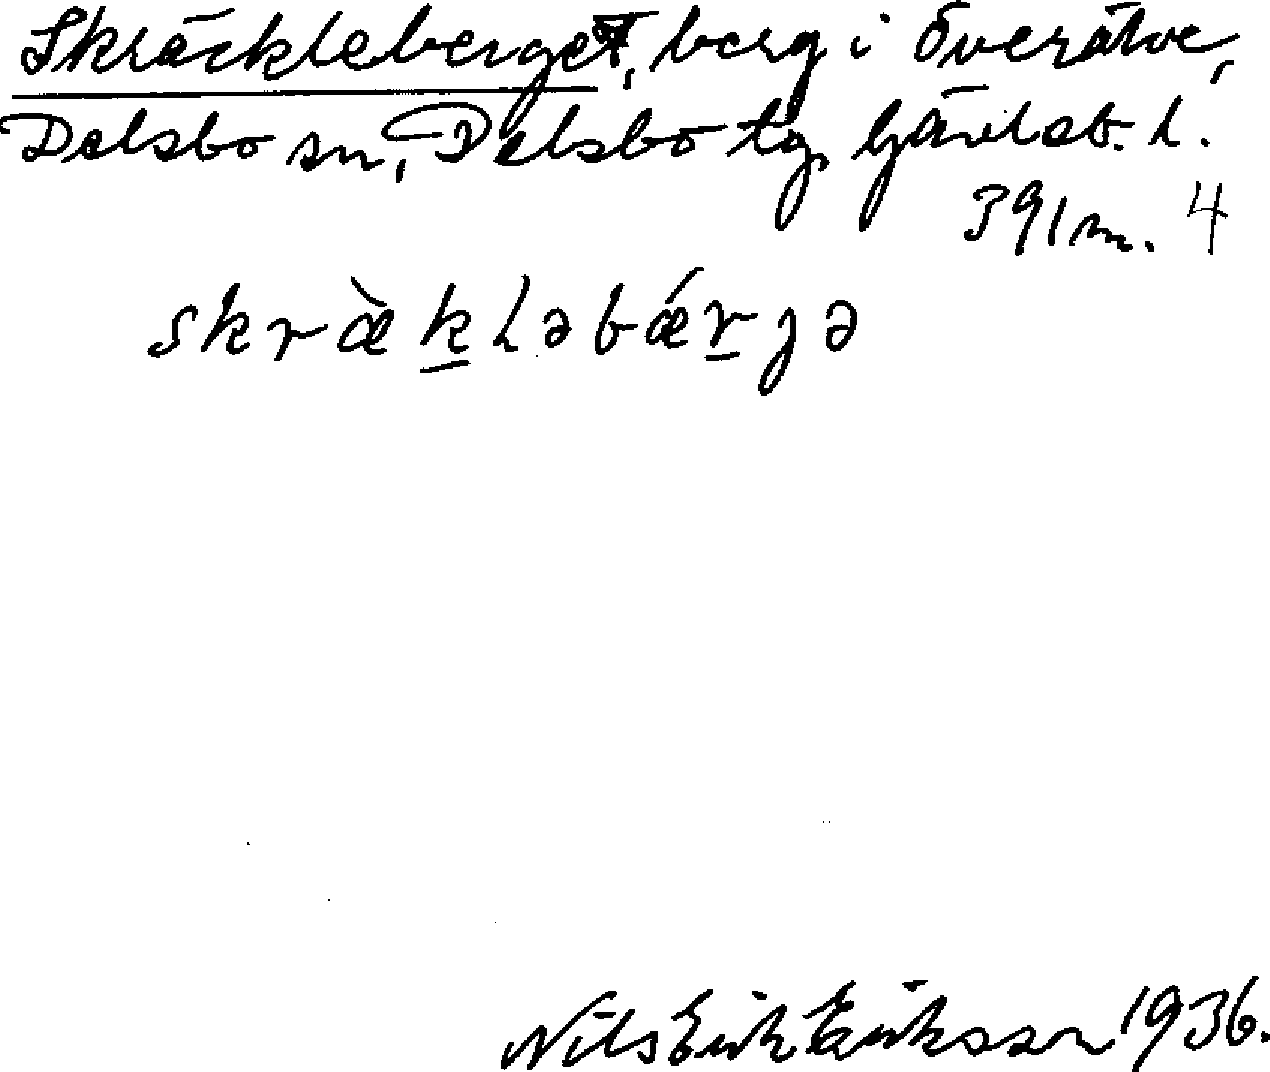 Skräckleberget, berg i Överälve,
Delsbo sn, Delsbo tg, Gävleb. l.
391 m. 4
skræ̀k̲ləbǽr̲jə
Nils Erik Eriksson 1936.